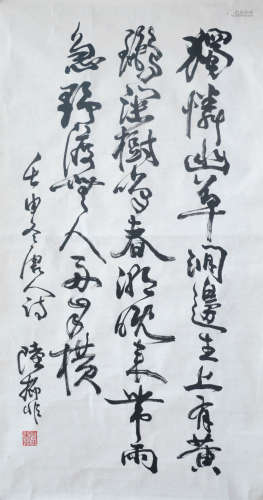 獨憐幽草澗邊生上有黃
鸝深樹鳴春潮晚來帶雨
急野渡無人舟自橫
壬申冬唐人詩
陸抑非